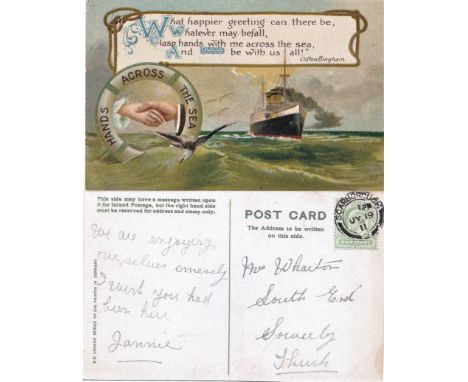 What happier greeting can there be,
Whatever may befall,
Clasp hands with me across the sea,
And be with us all!"
Clifton Bingham.
HANDS ACROSS THE SEA
This side may have a message written upon
it for Inland Postage, but the right hand side
must be reserved for address and stamp only.
We are engoying
ourselves emensly
I wish you had
been here
Jannie
POST CARD
The Address to be written
on this side.
SCARBOROUGH
JY 19
11
HALF PENNY
Mrs Wharton
South End
Sowerby
Thirsk